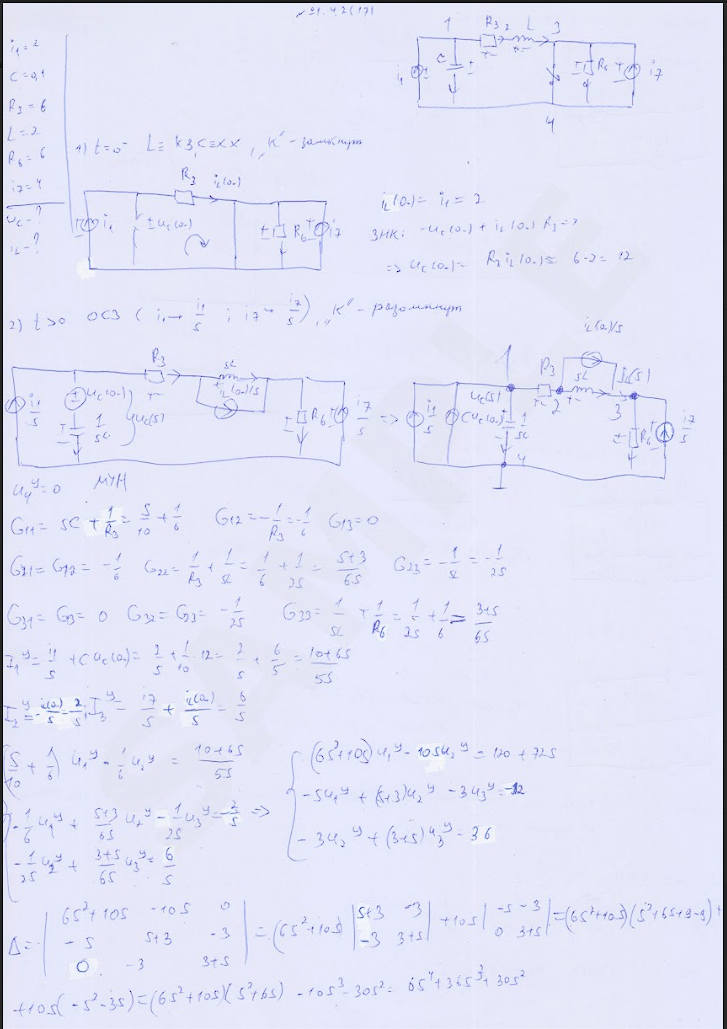 21.42(17)
1 R3 2 L 3
i1 C R6 i7
4
i1=2
C=0,1
R3=6
L=2
R6=6
i7=4
uc-?
iL-?
1) t=0- L≡кз, C≡хх, „К"-замкнут
R3 iL(0-)
i1 ± uc(0-) R6 i7
iL(0-)= i1 = 2
ЗНК: -uc(0-) + iL(0-) R3=
=> uc(0-)= R3 iL(0-)= 6·2= 12
2) t>0 ОСЗ (i1→ i1/s ; i7→ i7/s), „К"-разомкнут
R3 sL iL(0-)/s
i1/s uc(0-) 1/sC uc(s) R6 i7/s =>
iL(0-)/s
1 R3 sL IL(s)
i1/s Cuc(0-) uc(s) 1/sC 2 3 R6 i7/s
4
u4^y=0 МУН
G11= sC + 1/R3= s/10 + 1/6 G12=-1/R3=-1/6 G13=0
G21=G12= -1/6 G22= 1/R3 + 1/sL = 1/6 + 1/2s = s+3/6s G23=-1/sL=-1/2s
G31= G13= 0 G32= G23= -1/2s G33= 1/sL + 1/R6= 1/2s + 1/6= 3+s/6s
I1^y= i1/s + C uc(0-)= 2/s + 1/10 12= 2/s + 6/5 = 10+6s/5s
I2^y=-iL(0-)/s=-2/s; I3^y= i7/s + iL(0-)/s= 6/s
(s/10 + 1/6) u1^y - 1/6 u2^y = 10+6s/5s
-1/6 u1^y + s+3/6s u2^y - 1/2s u3^y=-2/s =>
-1/2s u2^y + 3+s/6s u3^y= 6/s
(6s²+10s)u1^y - 10su2^y = 120 + 72s
-su1^y + (s+3)u2^y - 3u3^y=-12
-3u2^y + (3+s)u3^y= 36
Δ= | 6s²+10s -10s 0 | = (6s²+10s) | s+3 -3 | + 10s | -s -3 | = (6s²+10s)(s²+6s+9-9)+
| -s s+3 -3 | | -3 3+s | | 0 3+s |
| 0 -3 3+s |
+10s(-s²-3s)=(6s²+10s)(s²+6s) -10s³-30s²= 6s⁴+36s³+30s²
SAMPLE